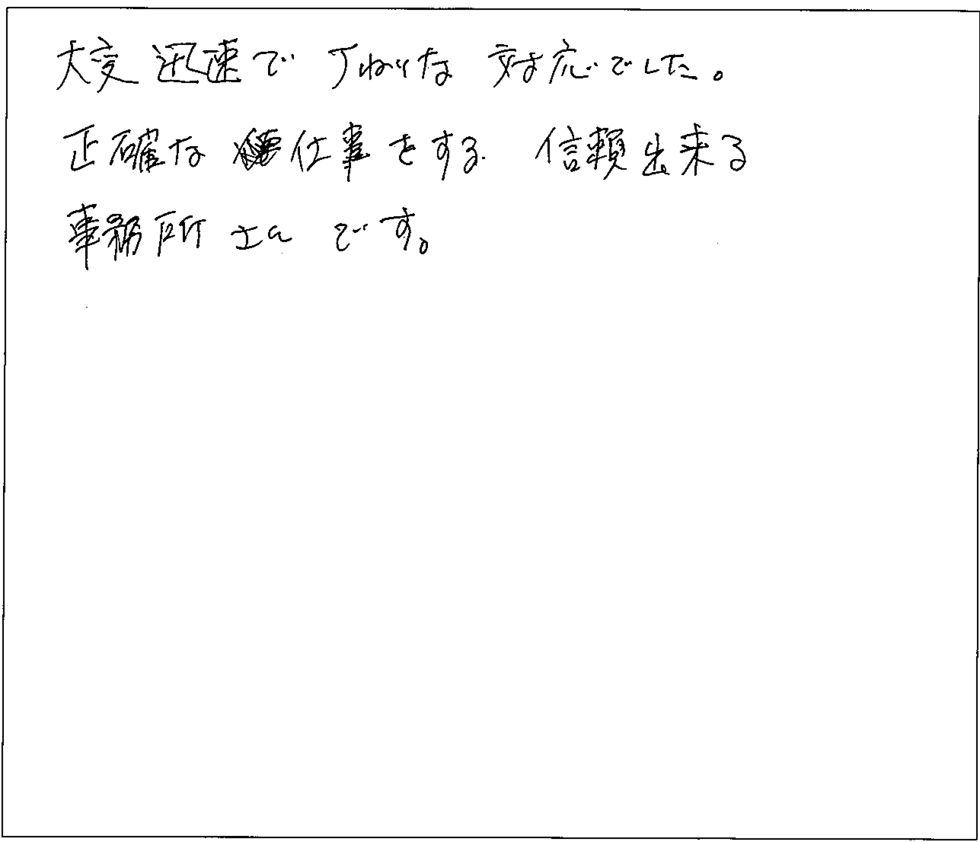 大変迅速で丁ねいな対応でした。
正確な仕事をする信頼出来る
事務所さんです。